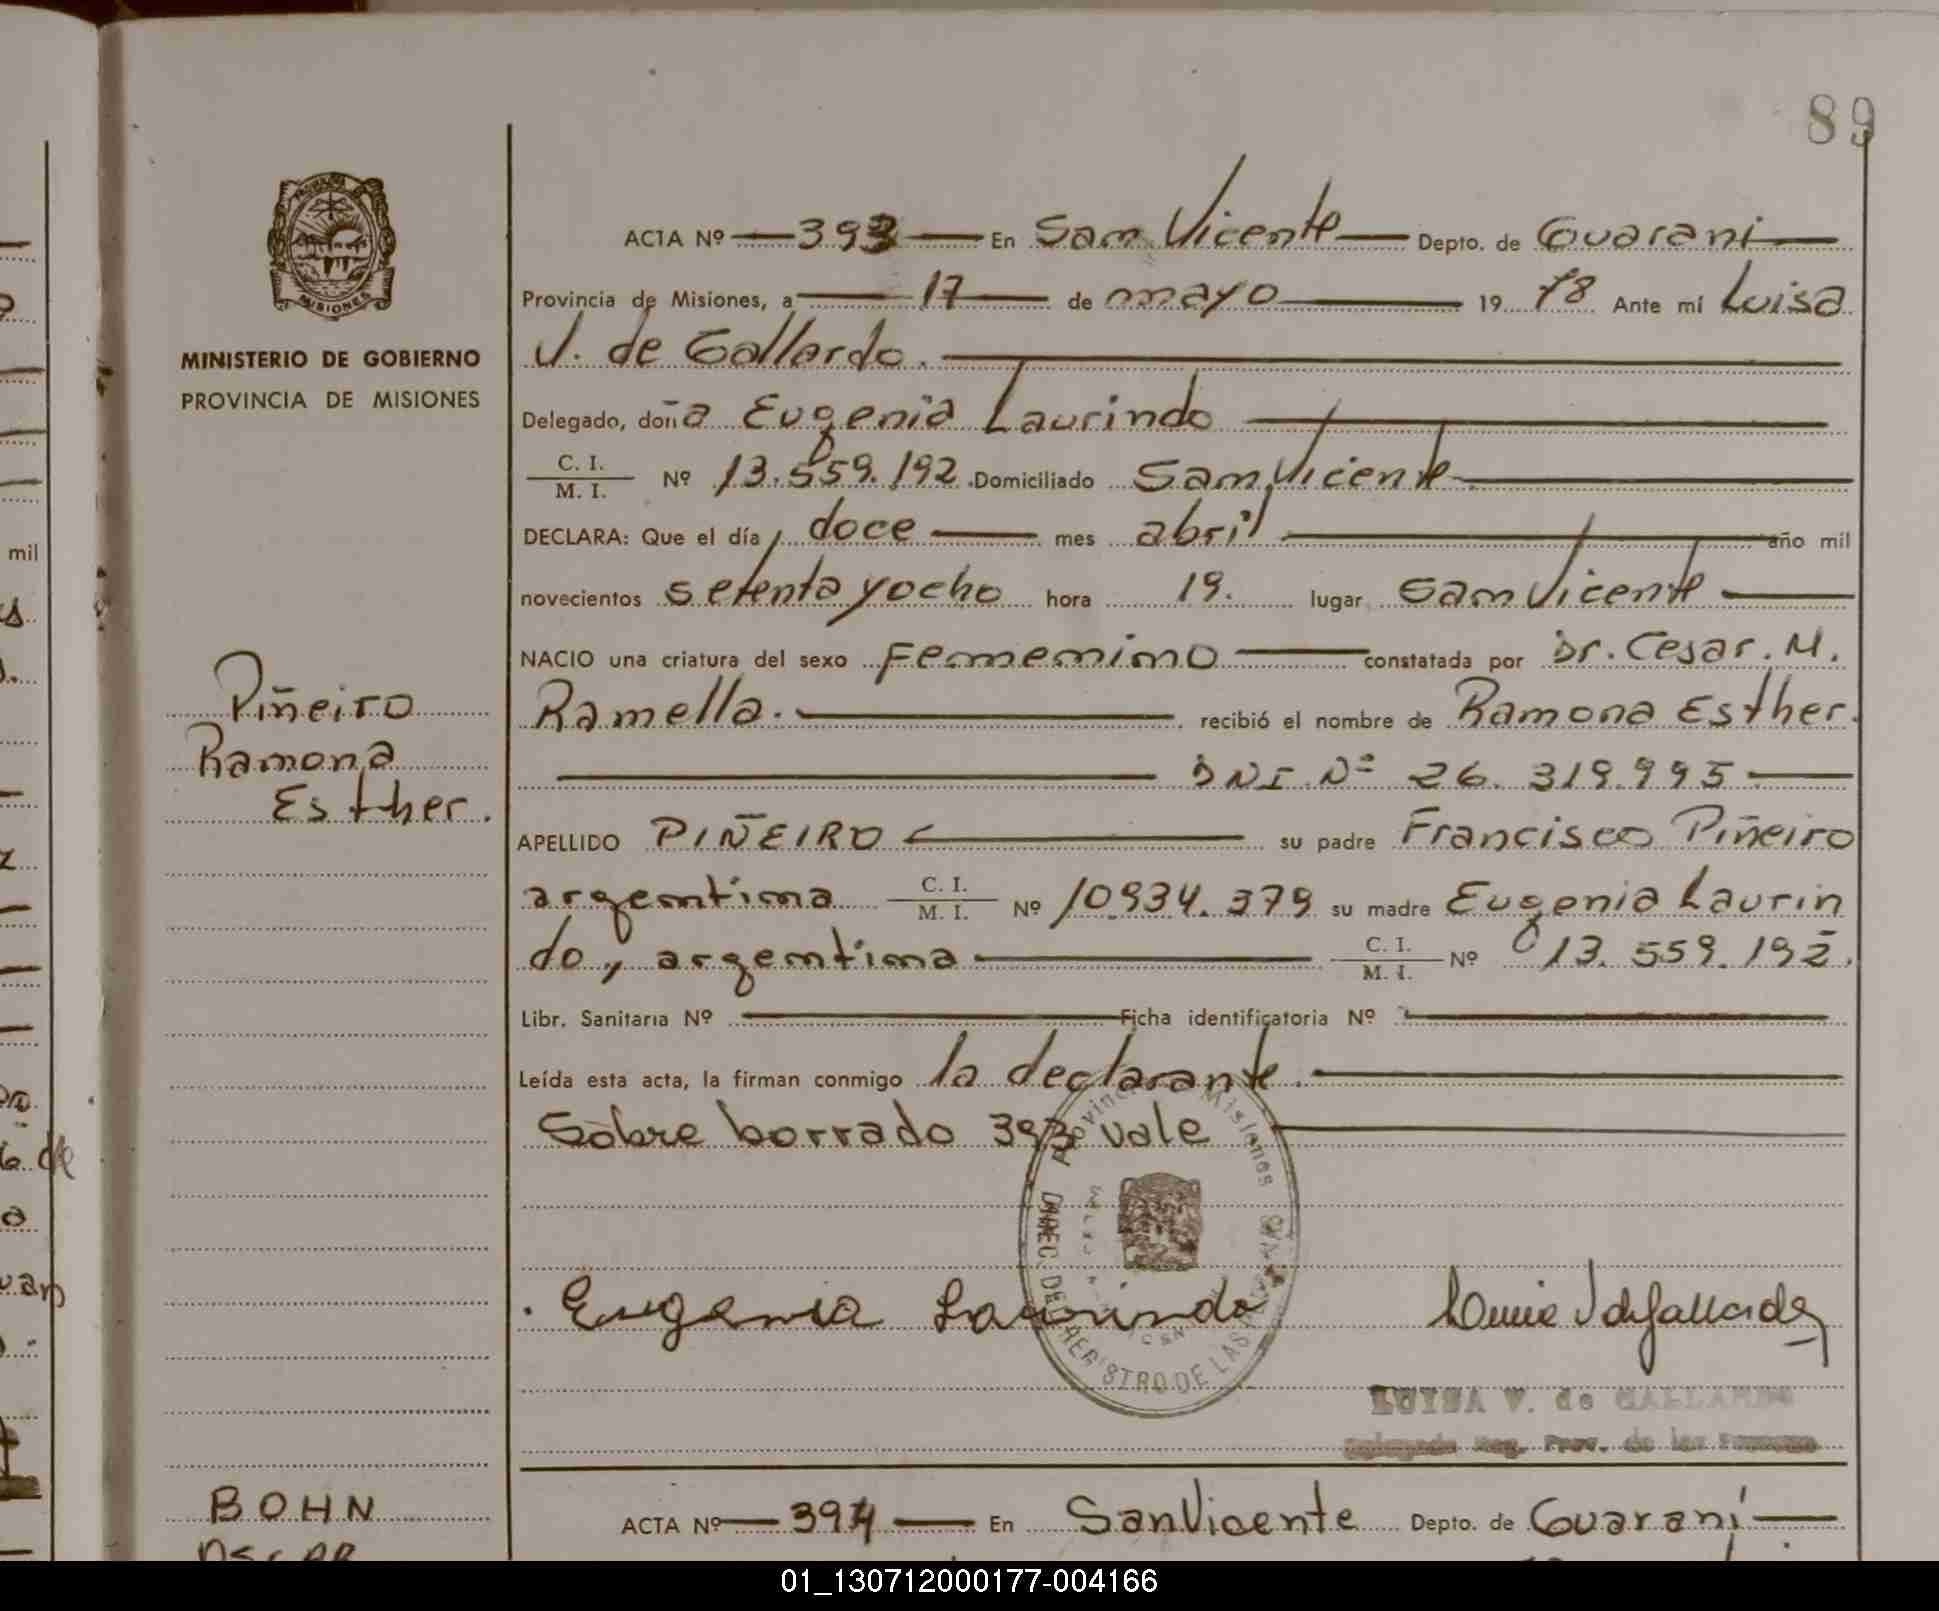 89
MISIONES
MINISTERIO DE GOBIERNO
PROVINCIA DE MISIONES
Piñeiro
Ramona
Esther.
ACTA Nº 393 En San Vicente Depto. de Guarani
Provincia de Misiones, a 17 de mayo 19 78 Ante mí Luisa
V. de Gallardo.
Delegado, doña Eugenia Laurindo
C. I. / M. I. Nº 13.559.192 Domiciliado San Vicente
DECLARA: Que el día doce mes abril año mil
novecientos setenta y ocho hora 19. lugar San Vicente
NACIO una criatura del sexo Femenino constatada por Dr. Cesar. M.
Ramella. recibió el nombre de Ramona Esther.
DNI Nº 26.319.995
APELLIDO PIÑEIRO su padre Francisco Piñeiro
argentina C. I. / M. I. Nº 10934.379 su madre Eugenia Laurin
do, argentina C. I. / M. I. Nº 13.559.192.
Libr. Sanitaria Nº Ficha identificatoria Nº
Leída esta acta, la firman conmigo la declarante.
Sobre borrado 393 vale
Provincia Misiones
REGISTRO DE LAS
Eugenia Laurindo
LUISA V. de GALLARDO
Delegada Reg. Prov. de las Personas
BOHN
OSCAR
ACTA Nº 394 En San Vicente Depto. de Guaraní
mil
de
01_130712000177-004166